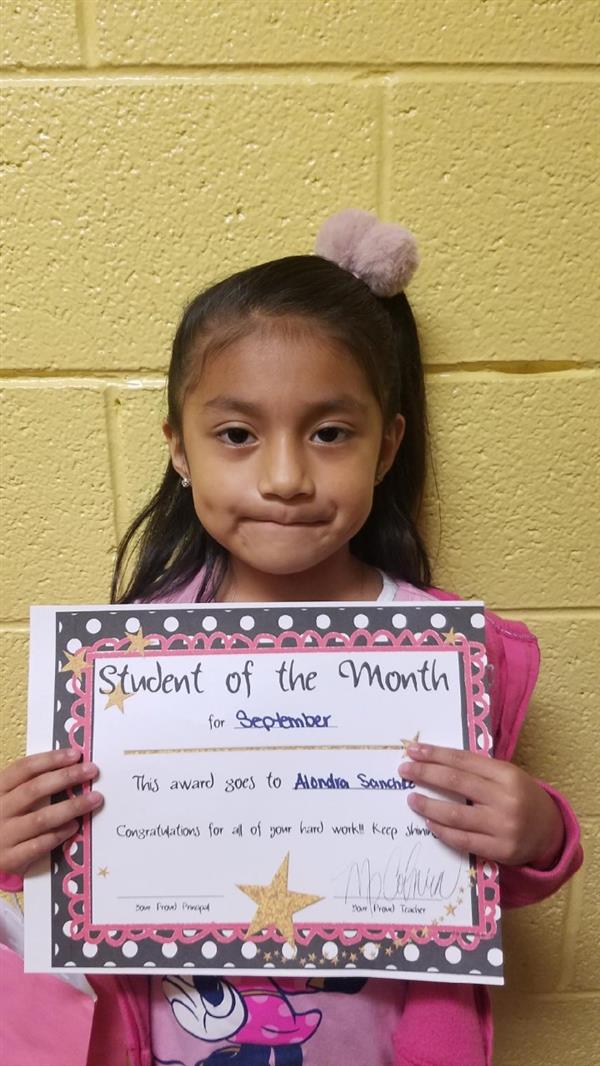 Student of the Month
for September
This award goes to Alondra
Congratulations for all of your hard work!! Keep
Your Proud Principal Your Proud Teacher